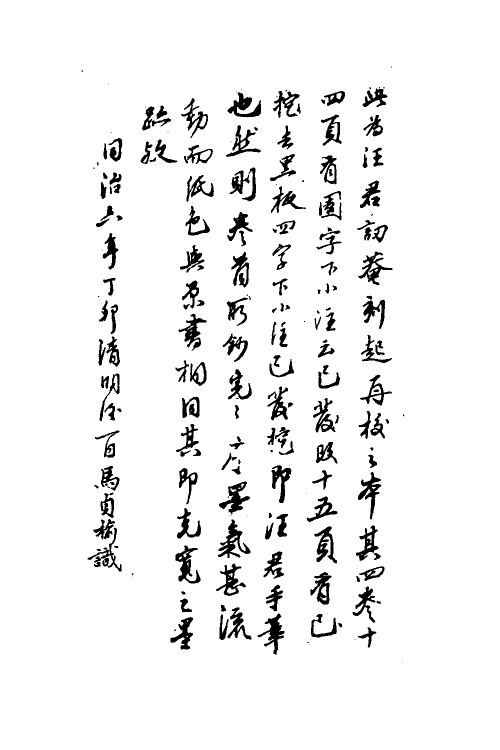 此為汪君訒菴刻起再校之本其四卷十
四頁有圖字下小注云已發改十五頁有已
挖去黑板四字下小注已發挖即汪君手筆
也然則卷首所鈔完之序墨氣甚流
動而紙色與原書相同其即克寬之墨
跡欤
同治六年丁卯清明後一日馬貞榆識